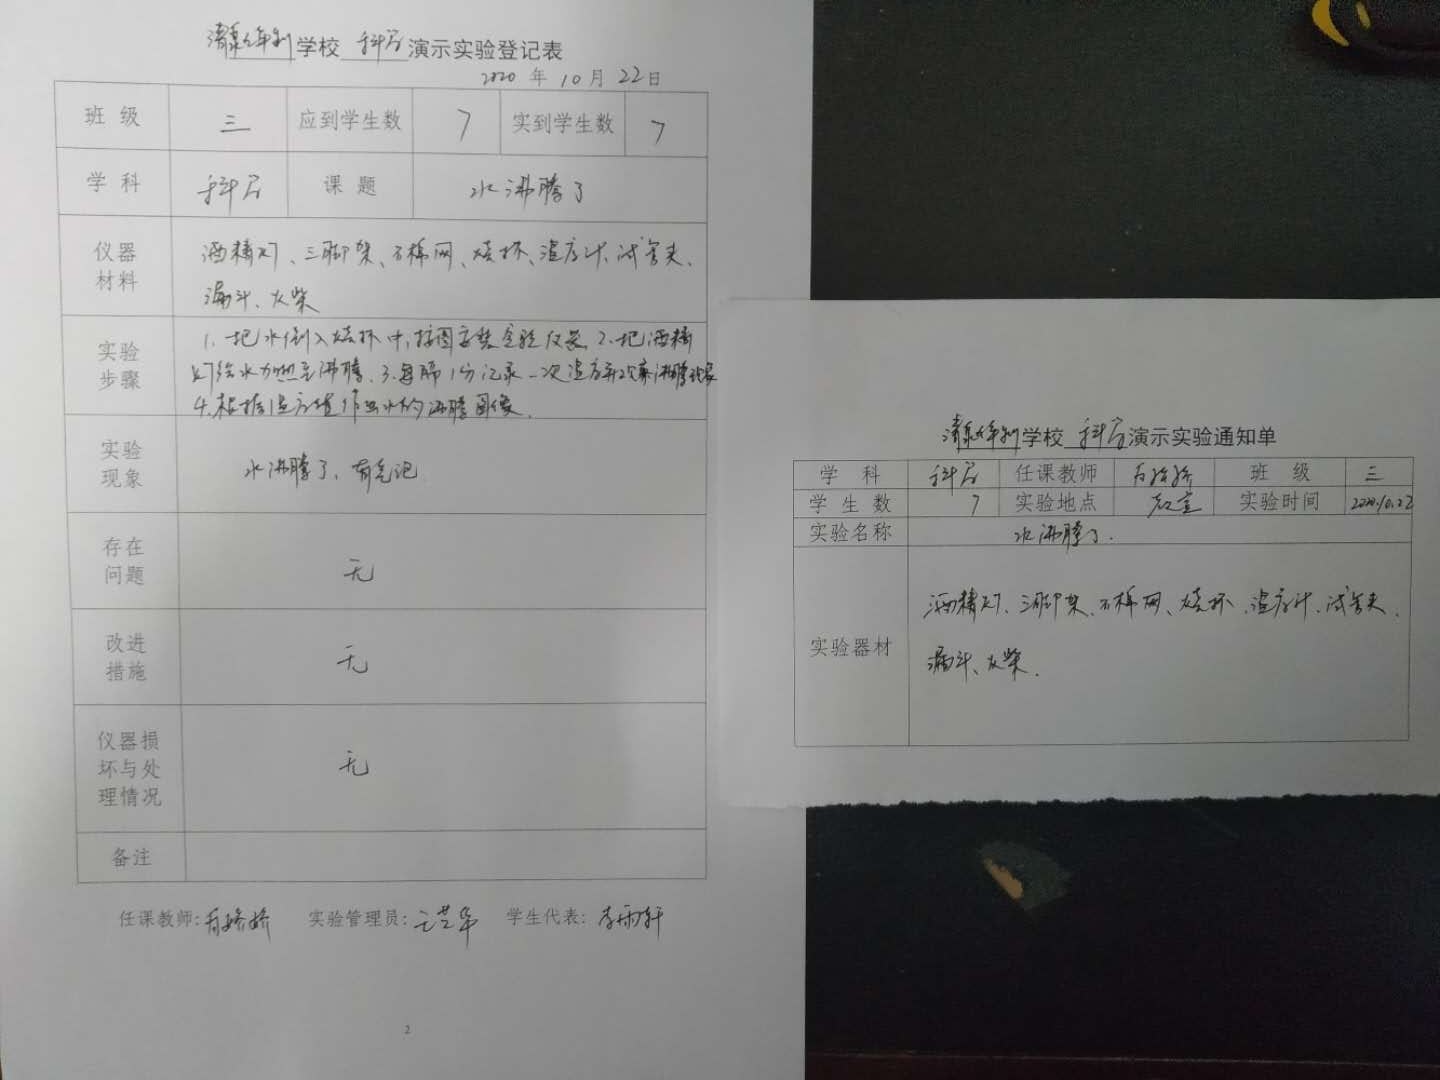 学校 科学 演示实验登记表
2020 年 10 月 22 日
班 级 三 应到学生数 7 实到学生数 7
学 科 科学 课 题 水沸腾了
仪器材料 酒精灯、三脚架、石棉网、烧杯、温度计、试管夹、
漏斗、火柴
实验步骤 1. 把水倒入烧杯中,按图安装实验仪器 2. 把酒精
灯给水加热至沸腾. 3. 每隔1分记录一次温度并观察沸腾现象
4. 根据温度值作出水的沸腾图像.
实验现象 水沸腾了、有气泡
存在问题 无
改进措施 无
仪器损坏与处理情况 无
备注
任课教师: 实验管理员: 学生代表: 李雨轩
2
学校 科学 演示实验通知单
学 科 科学 任课教师 班 级 三
学 生 数 7 实验地点 教室 实验时间 2020.10.22
实验名称 水沸腾了.
实验器材 酒精灯、三脚架、石棉网、烧杯、温度计、试管夹、
漏斗、火柴.